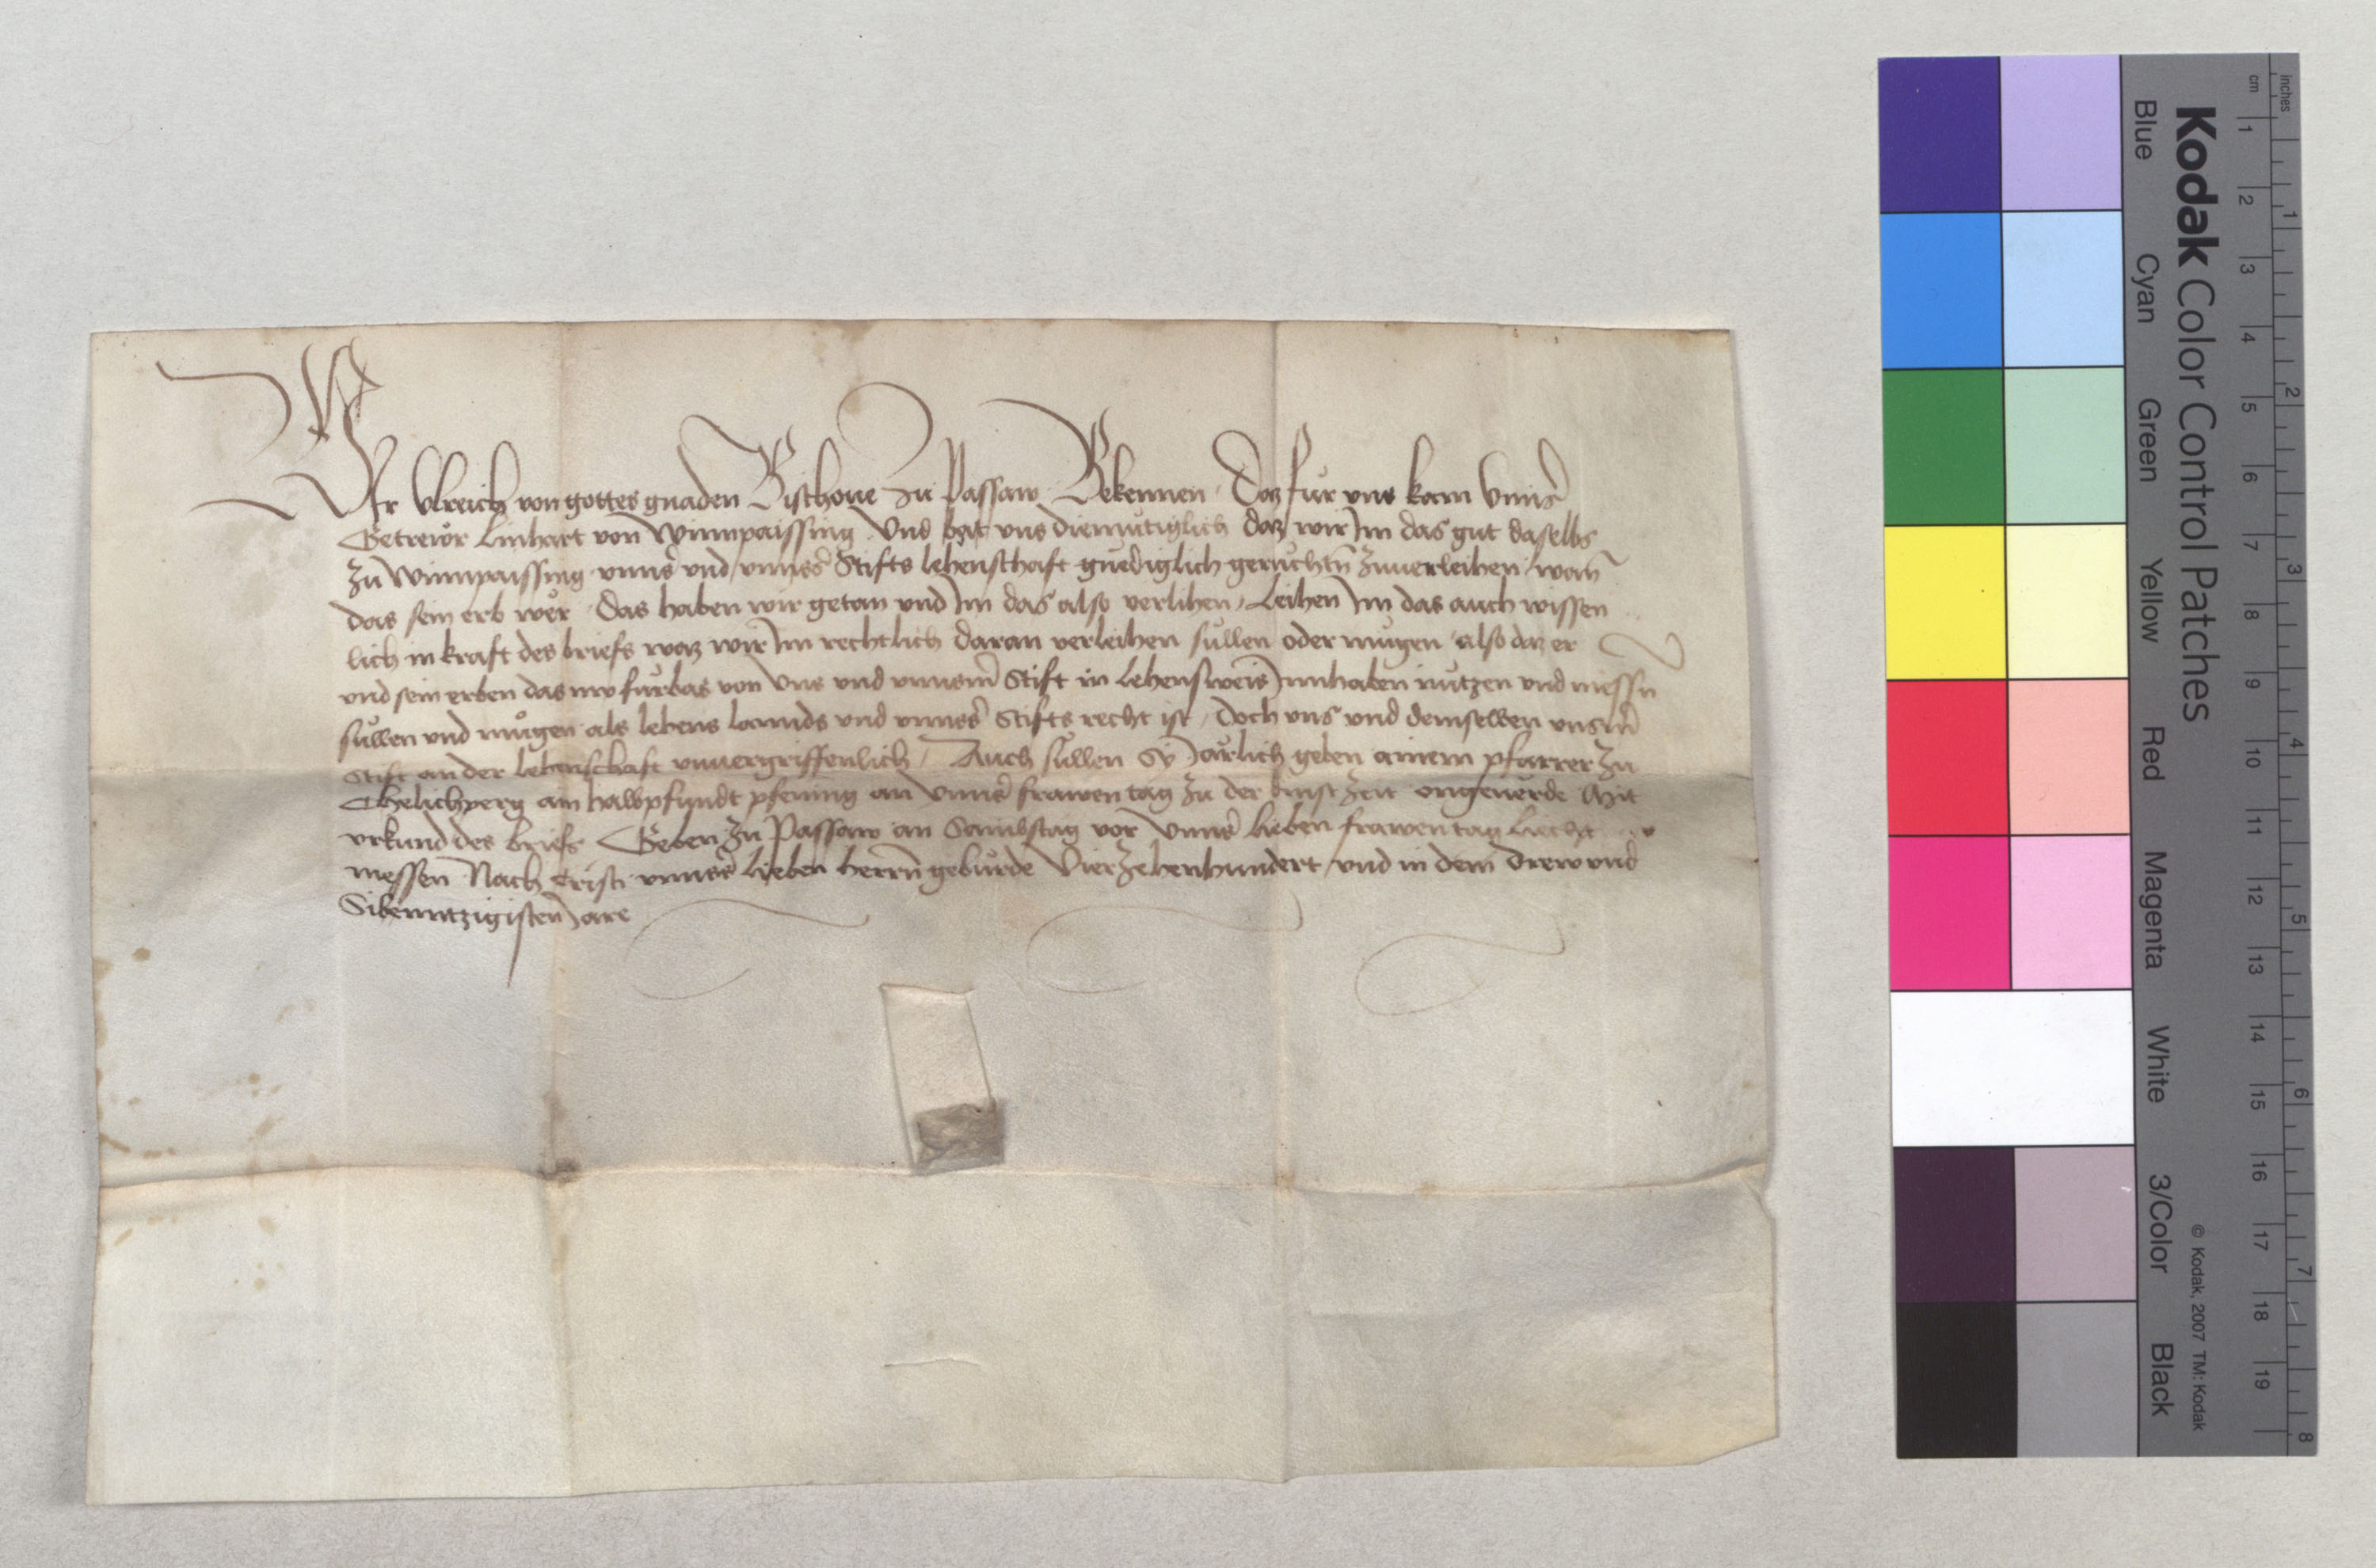 Wir Ulreich von gottes gnaden Bischoue zu Passaw Bekennen / Daz fur uns kom Unnser
Getrewr Linhart von Winnpaissing Und bat uns diemutiglich daz wir Im das gut daselbs
zu Winnpaissing unnser und unnsers Stifts lehenschaft gnediglich geruchtn zuuerleihen / wan
das sein erb wer / Das haben wir getan und Im das also verlihen / Leihen Im das auch wissen
lich in kraft des briefs waz wir Im rechtlich daran verleihen sullen oder mugen / also daz er
und sein erben das nw furbas von Uns und unnserm Stift in lehensweis Innhaben nutzen und niessn
sullen und mugen als lehens lannds und unnsers Stifts recht ist / Doch uns und demselben unserm
Stift an der lehenschaft unuergriffenlich / Auch sullen Sy Jarlich geben ainem pfarrer zu
Chelichperg ain halbpfundt pfening an Unnser frawen tag zu der dinst zeit ongeuerde Mit
urkund des briefs Geben zu Passaw an Sambstag vor Unnser lieben frawen tag Liecht
messen Nach Cristi unnsers lieben herrn geburde Vierzehenhundert / und in dem Drewund
Sibenntzigisten Jare
Kodak Color Control Patches
Blue Cyan Green Yellow Red Magenta White 3/Color Black
© Kodak, 2007 TM: Kodak
cm 1 2 3 4 5 6 7 8 9 10 11 12 13 14 15 16 17 18 19
inches 1 2 3 4 5 6 7 8